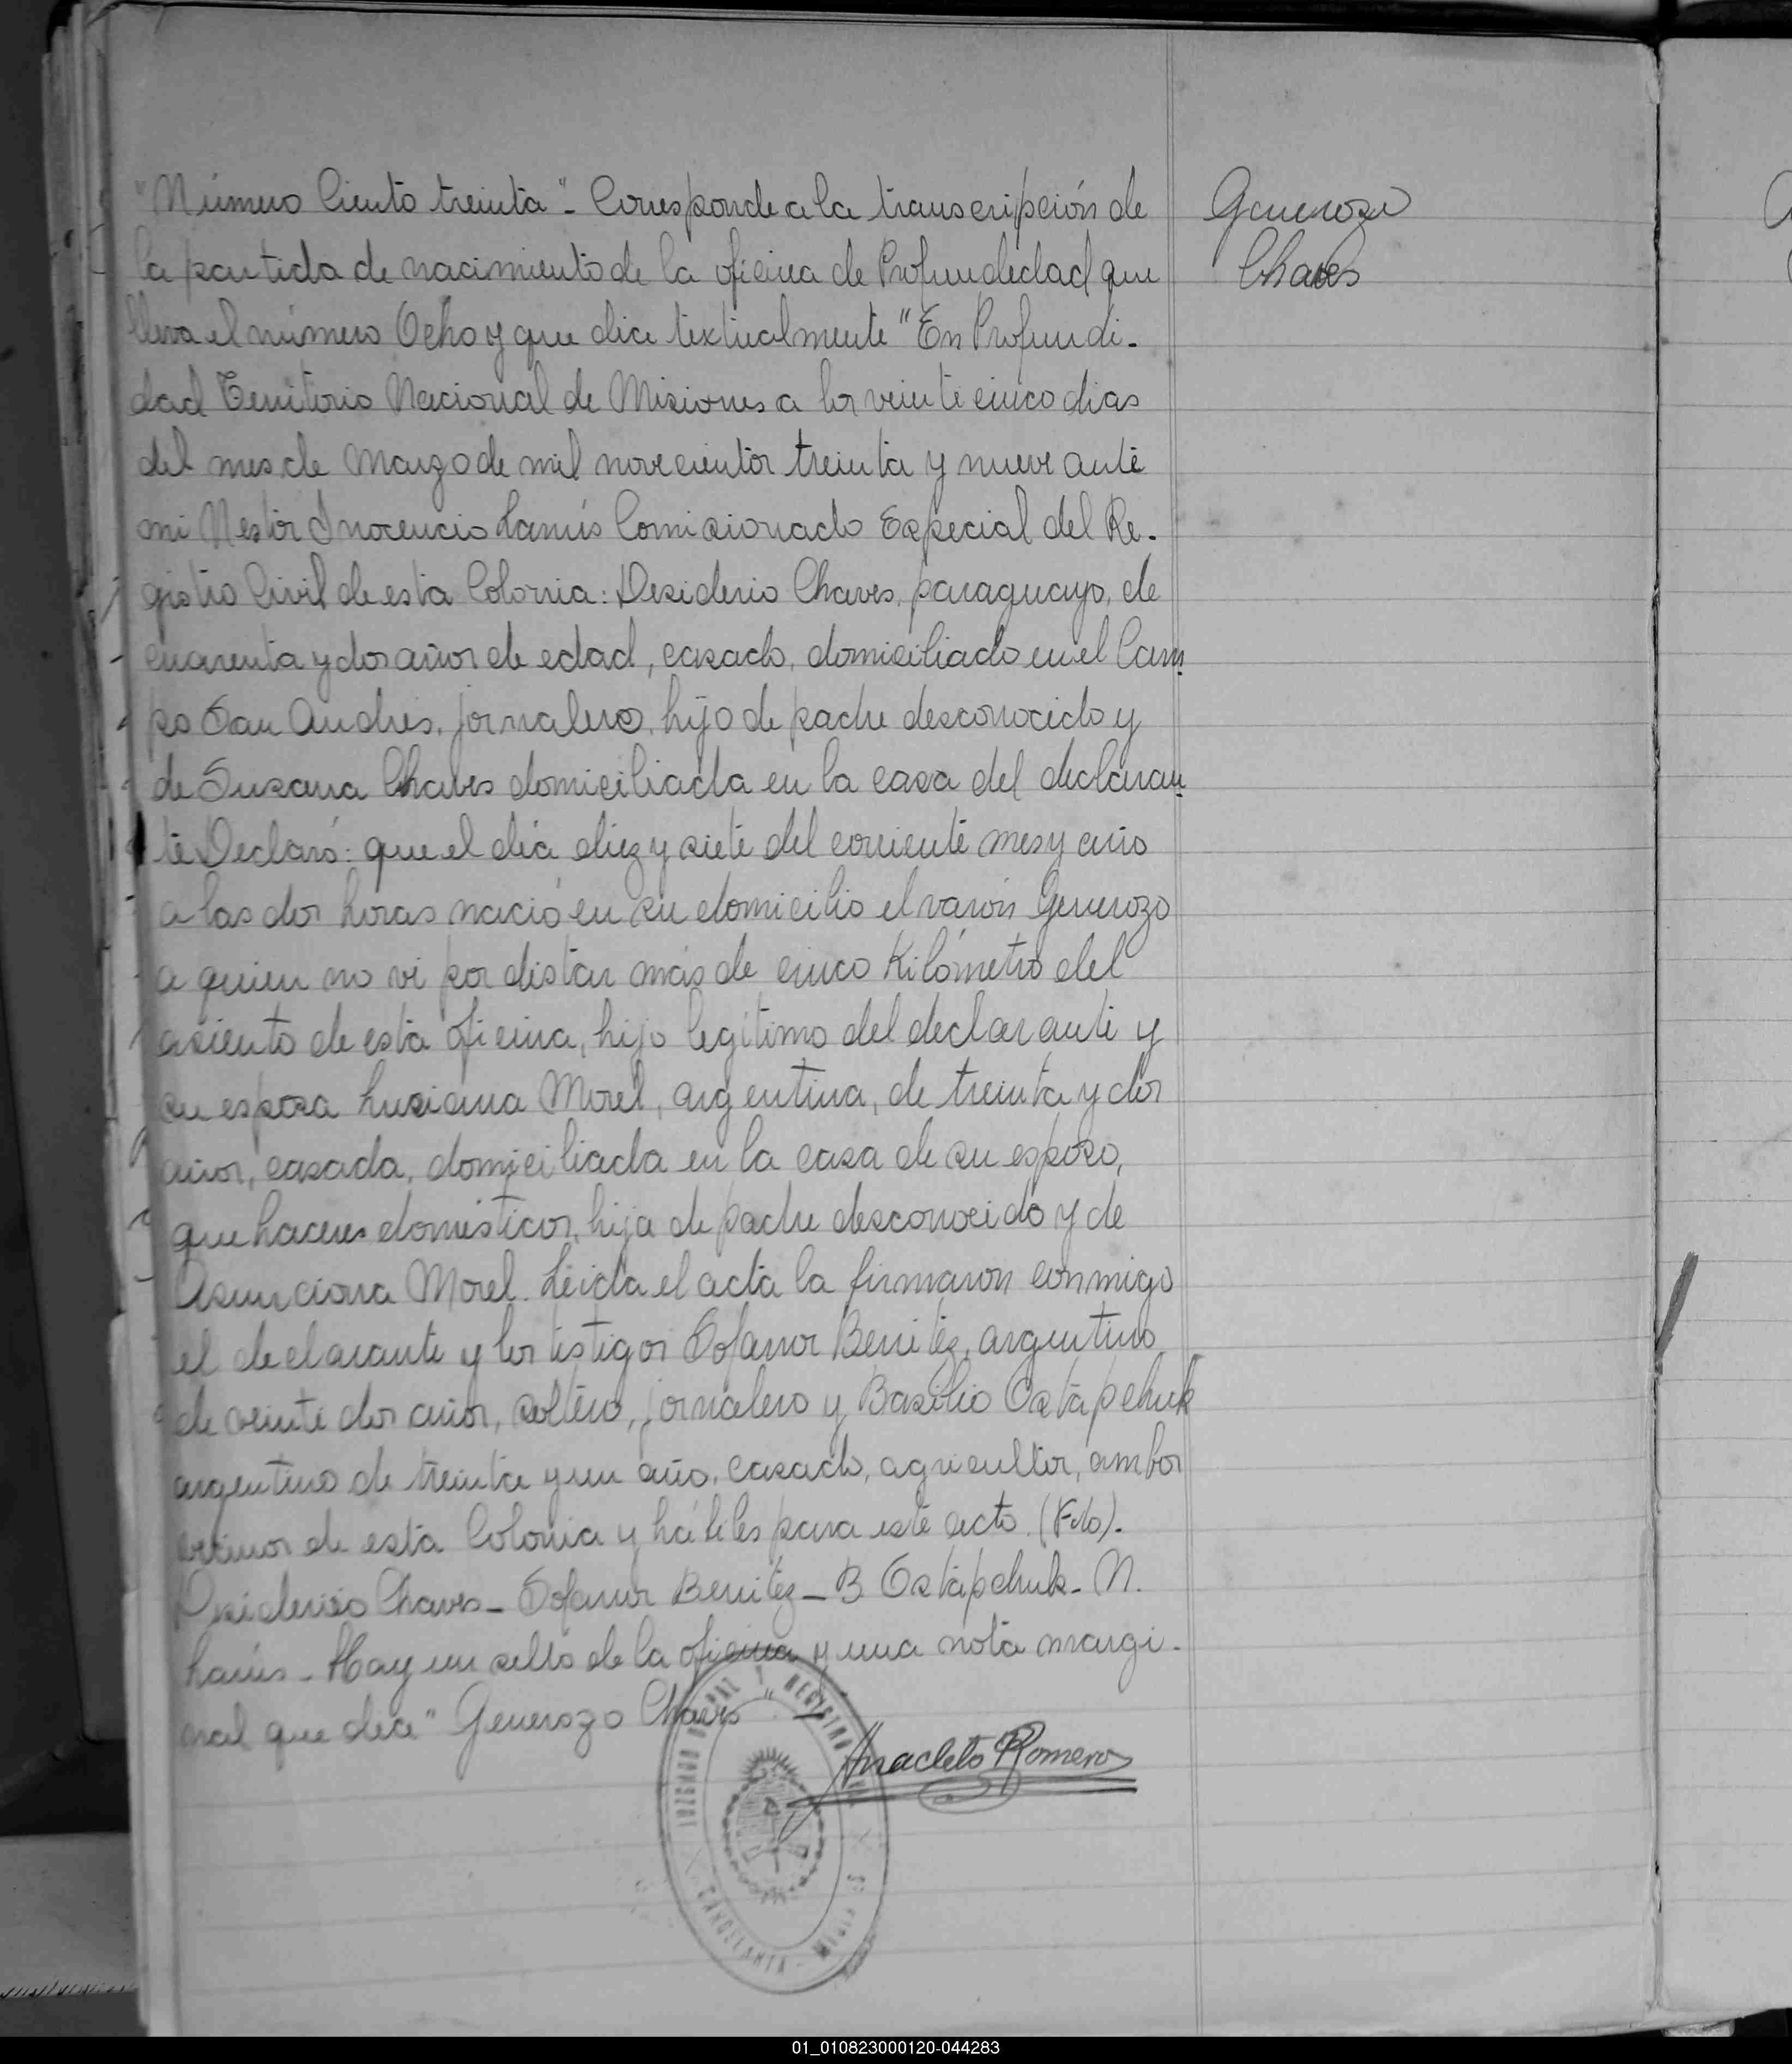 "Número Ciento treinta"- Corresponde a la transcripción de
la partida de nacimiento de la oficina de Profundedad que
lleva el número Ocho y que dice textualmente "En Profundi-
dad Territorio Nacional de Misiones a los veinte cinco dias
del mes de Marzo de mil novecientos treinta y nueve ante
mi Nestor Inocencio Lanús Comisionado Especial del Re-
gistro Civil de esta Colonia: Desiderio Chaves, paraguayo, de
cuarenta y dos años de edad, casado, domiciliado en el Cam
po San Andrés, jornalero, hijo de padre desconocido y
de Susana Chaves domiciliada en la casa del declaran
te Declaró: que el día diez y siete del corriente mes y año
a las dos horas nació en su domicilio el varón Generozo
a quien no vi por distar más de cinco Kilómetro del
asiento de esta oficina, hijo legítimo del declarante y
su esposa Lusiana Morel, argentina, de treinta y dos
años, casada, domiciliada en la casa de su esposo,
que haceres domésticos, hija de padre desconocido y de
Asunciona Morel. Leida el acta la firmaron conmigo
el declarante y los testigos Sofanor Benitez, argentino
de veinte dos años, soltero, jornalero y Basilio Ostapchuk
argentino de treinta y un año, casado, agricultor, ambos
vecinos de esta Colonia y hábiles para este acto. (Fdo).
Desiderio Chaves - Sofanor Benitez - B Ostapchuk - N.
Lanús - Hay un sello de la oficina y una nota margi-
nal que dice "Generozo Chaves".
Anacleto Romero
JUZGADO DE PAZ Y REGISTRO
CANDELARIA
Generoso
Chaves
01_010823000120-044283